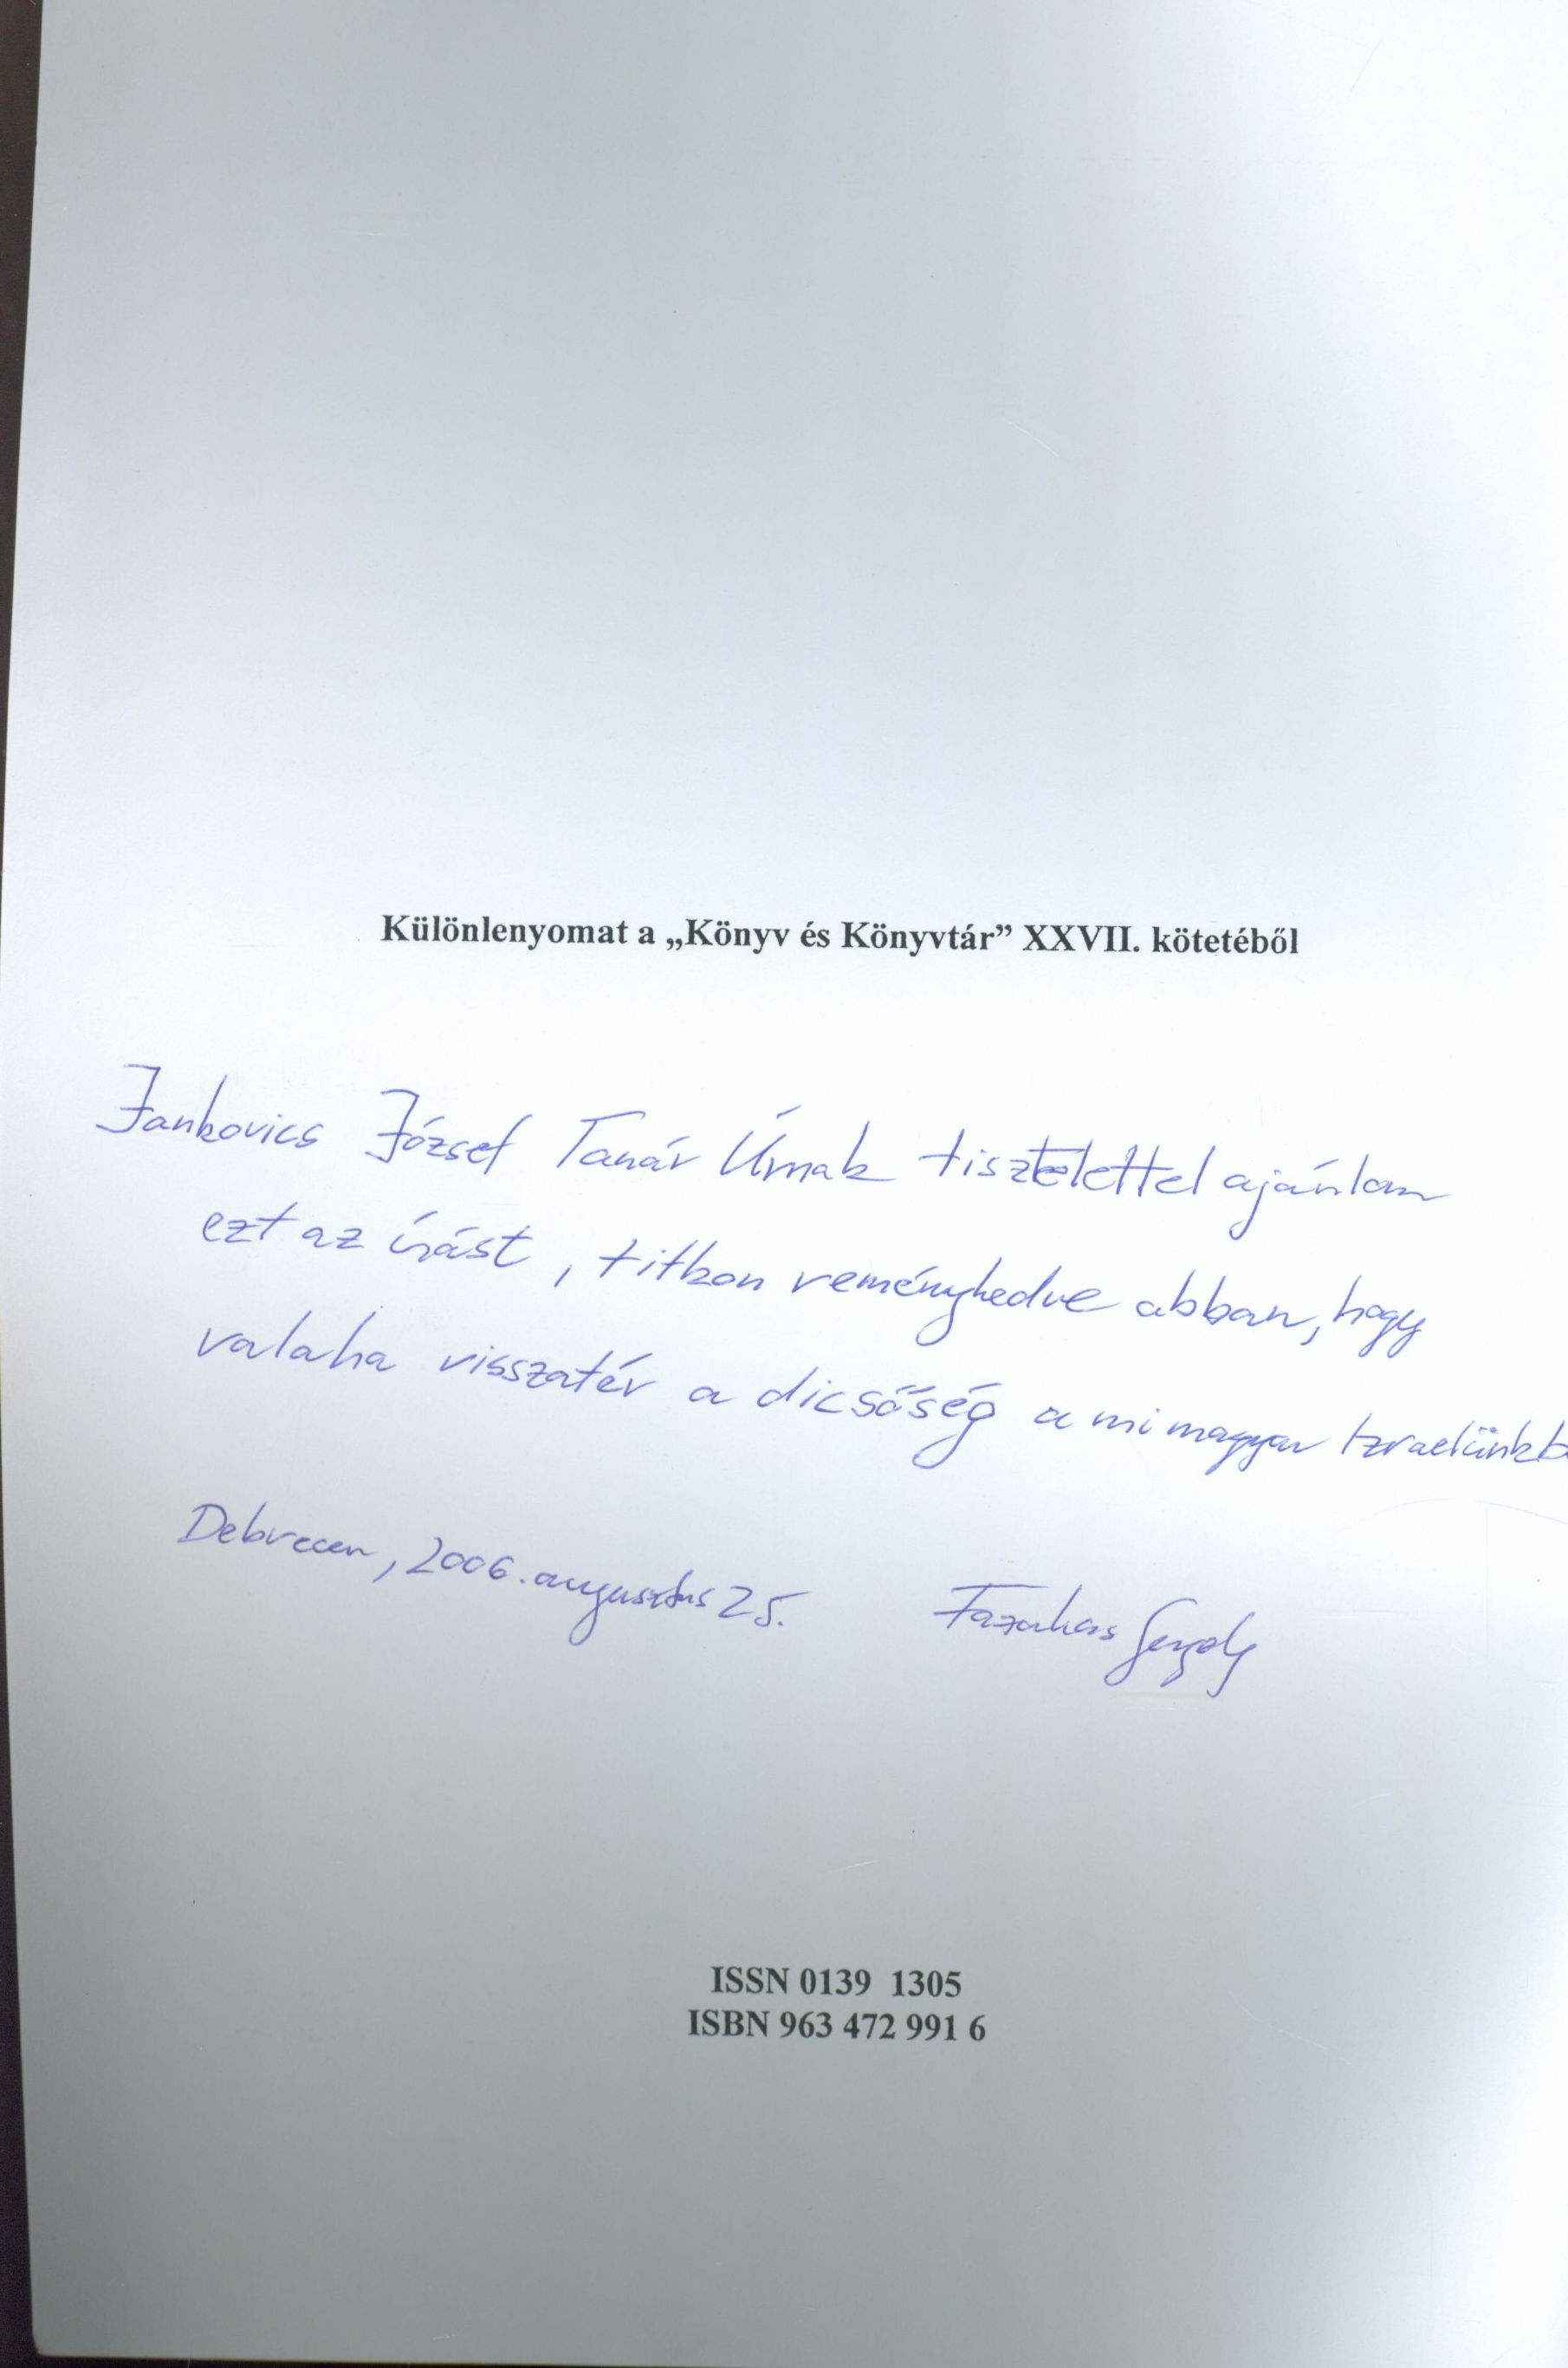 Különlenyomat a „Könyv és Könyvtár” XXVII. kötetéből
Jankovics József Tanár Úrnak tisztelettel ajánlom
ezt az írást, titkon reménykedve abban, hogy
valaha visszatér a dicsőség a mi magyar Izraelünkb
Debrecen, 2006. augusztus 25. Fazakas Gergely
ISSN 0139 1305
ISBN 963 472 991 6